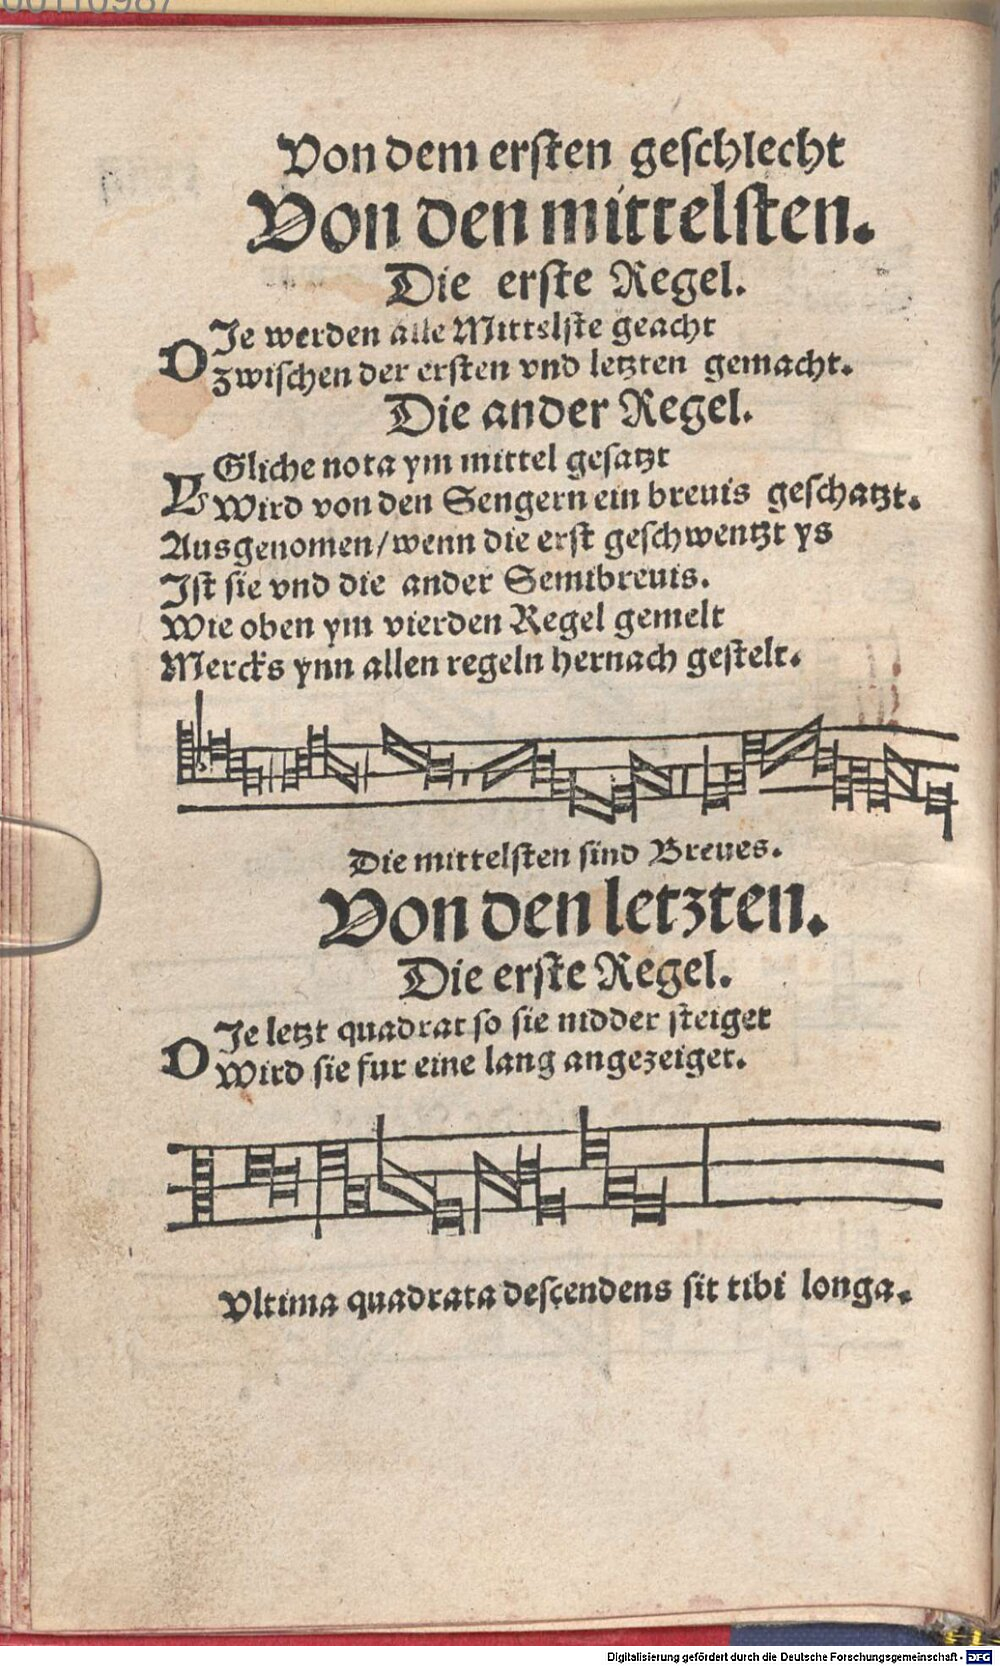 Von dem ersten geschlecht
Von den mittelsten.
Die erste Regel.
DIe werden alle Mittelste geacht
zwischen der ersten vnd letzten gemacht.
Die ander Regel.
YGliche nota ym mittel gesatzt
Wird von den Sengern ein breuis geschatzt.
Ausgenomen/wenn die erst geschwentzt ys
Ist sie vnd die ander Semibreuis.
Wie oben ym vierden Regel gemelt
Mercks ynn allen regeln hernach gestelt.
Die mittelsten sind Breues.
Von den letzten.
Die erste Regel.
DIe letzt quadrat so sie nidder steiget
Wird sie fur eine lang angezeiget.
Vltima quadrata descendens sit tibi longa.
Digitalisierung gefördert durch die Deutsche Forschungsgemeinschaft - DFG